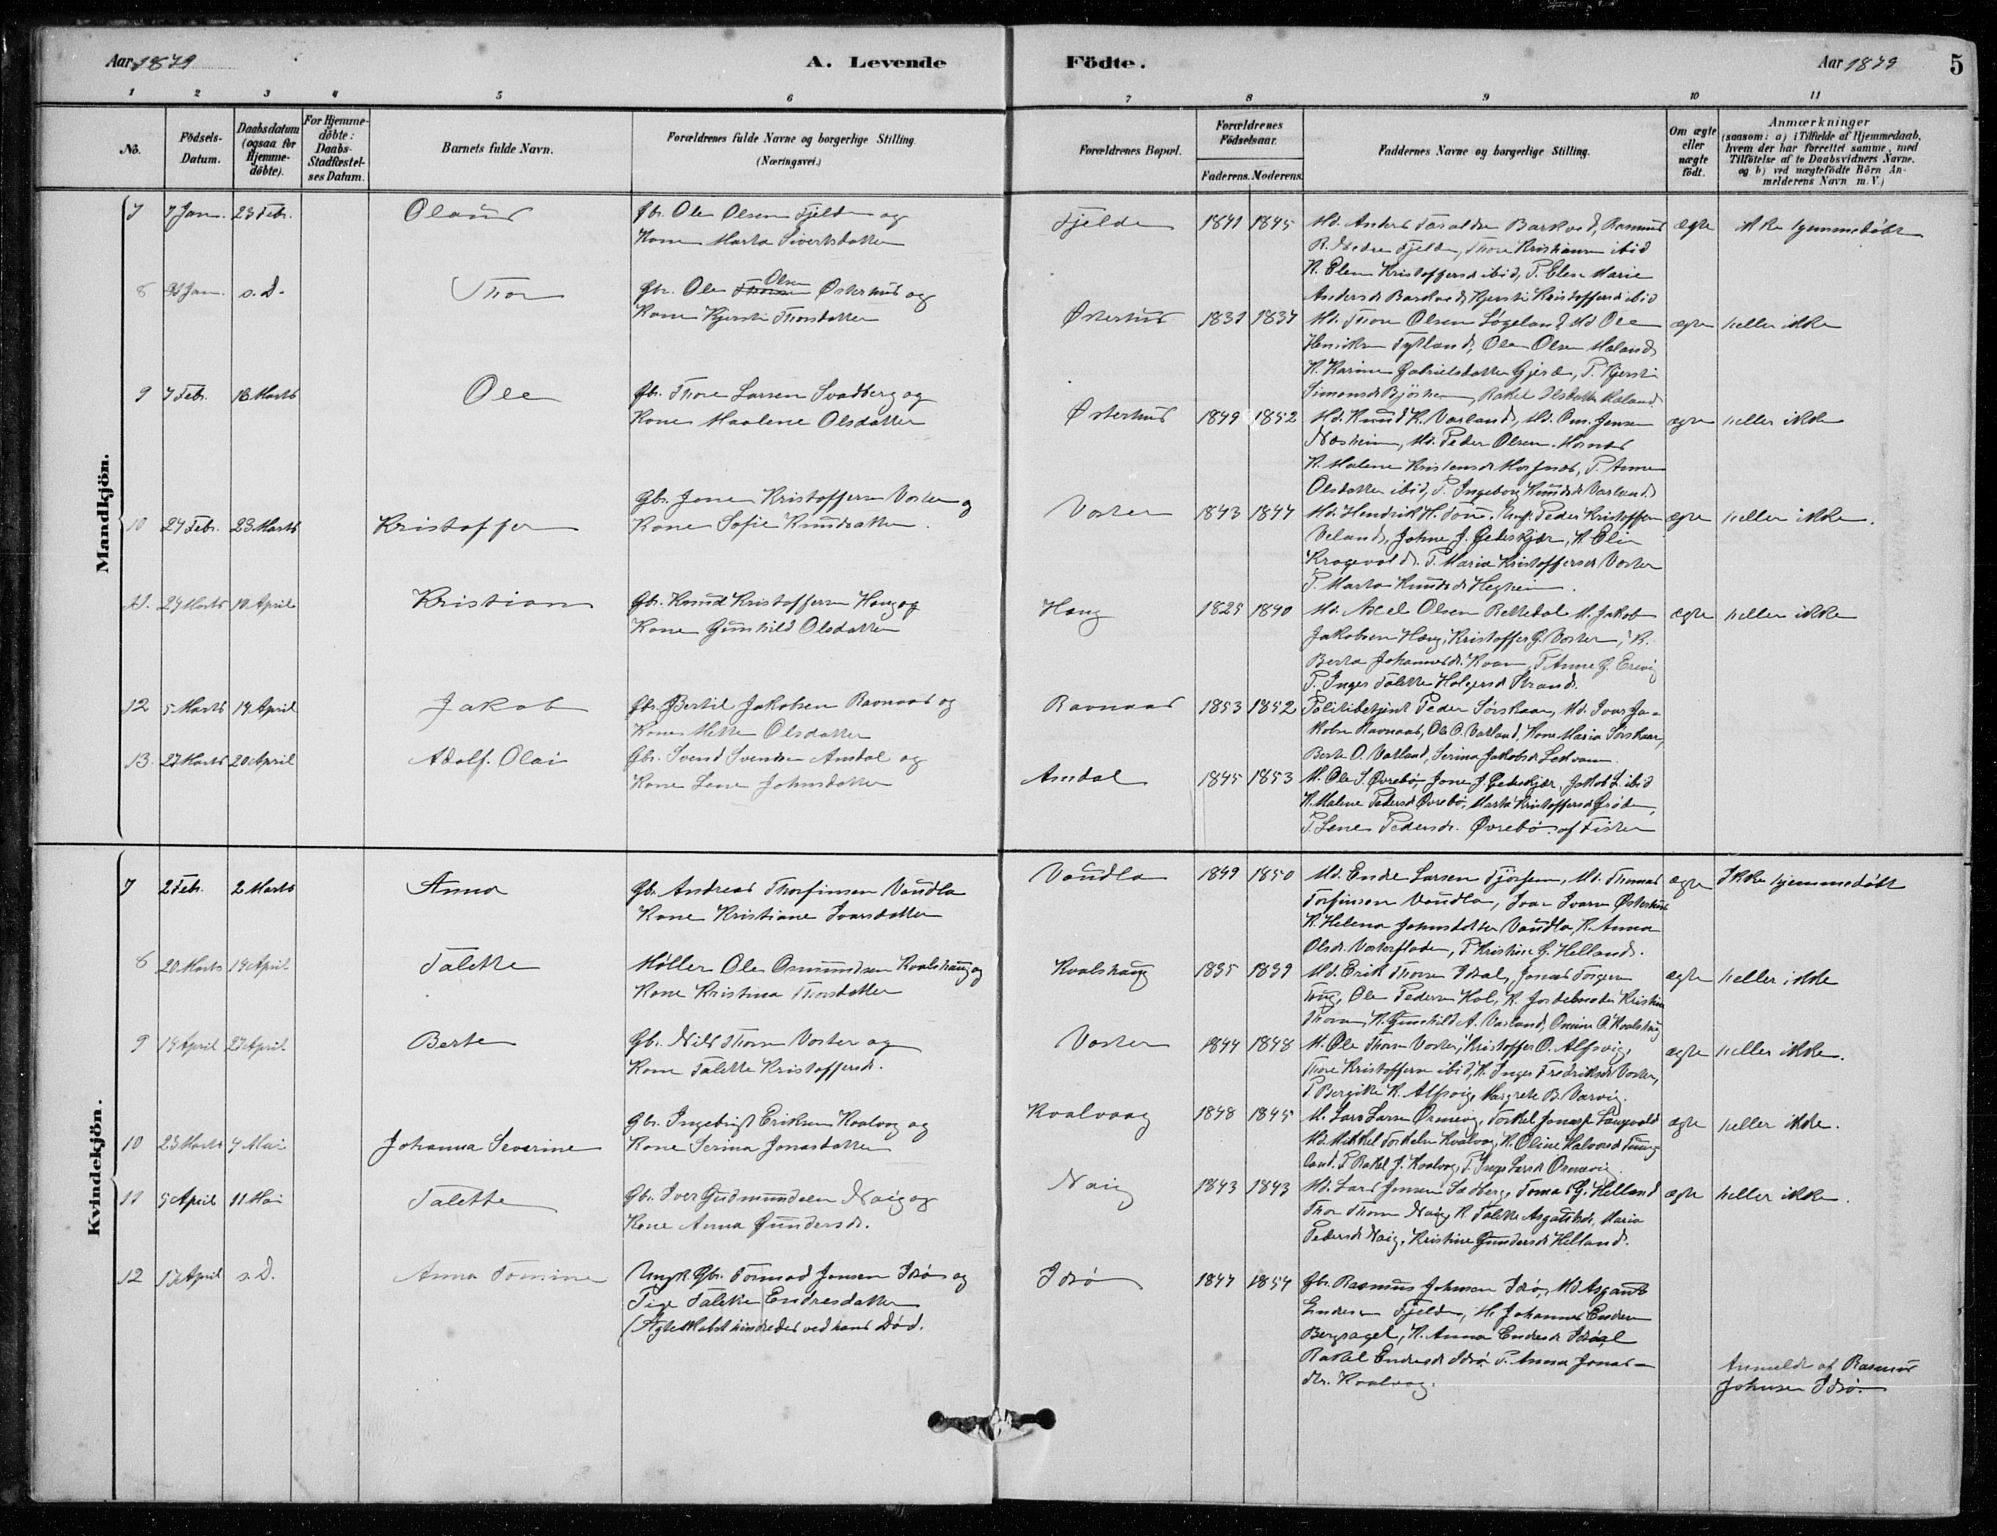 Aar 1879
A. Levende
Födte.
Aar 1879
5
1
2
3
4
5
6
7
8
9
10
11
No.
Födsels-
Datum.
Daabsdatum
(ogsaa for
Hjemme-
döbte).
For Hjemme-
döbte:
Daabs-
Stadfæstel-
ses Datum.
Barnets fulde Navn.
Forældrenes fulde Navne og borgerlige Stilling.
(Næringsvei.)
Forældrenes Bopæl.
Forældrenes
Födselsaar.
Faderens. Moderens.
Faddernes Navne og borgerlige Stilling.
Om ægte
eller
uægte
födt.
Anmærkninger
(saasom: a) i Tilfælde af Hjemmedaab,
hvem der har forrettet samme, med
Tilföielse af to Daabsvidners Navne.
og b) ved uægtefödte Börn An-
melderens Navn m. V.)
Mandkjön.
7 7 Jan. 23 Febr. Olaus
Gbr. Ole Olsen Fjelde og
Kone Marta Sivertsdatter
Fjelde 1841 1845
Md. Anders Taraldsen Barkved, Rasmus
R. Nedre Fjelde, Thore Kristiansen ibid
K. Elen Kristoffersd ibid, P. Elen Marie
Andersd Barkved, Kjersti Kristoffersd ibid
ægte Ikke hjemmedøbt
8 Jan. s. D. Thore
Gbr. Ole Olsen Østerhus og
Kone Kjersti Thorsdatter
Østerhus 1831 1837
Md. Thore Olsen Løgeland, Md Ole
Henriksen Tytland, Ole Olsen Mæland
K. Karine Gabrielsdatter Gjerde, P. Kjersti
Simonsd Bjørheim, Rakel Olsdatter Mæland
ægte heller ikke
9 7 Febr. 18 Marts Ole
Gbr. Thore Larsen Svadberg og
Kone Maalene Olsdatter
Østerhus 1849 1852
Md. Knud K. Varland, Md. Om. Jensen
Næsheim, Md. Peder Olsen
K. Malene Kristensd P. Anne
Olsdatter ibid, P. Ingeborg Knudsd Varland
ægte heller ikke
10 24 Febr. 23 Marts Kristoffer
Gbr. Jone Kristoffersen Voster og
Kone Sofie Knudsdatter.
Voster 1843 1847
Md. Hendrik H. Ungk. Peder Kristoffersen
Veland, Johne J. Gederkjær, K. Elin
P. Maria Kristoffersd Voster
P. Marta Knudsd Hegheim.
ægte heller ikke.
11. 24 Marts 10 April Kristian
Gbr. Knud Kristoffersen Haug og
Kone Gunhild Olsdatter
Haug 1825 1840
Md. Axel Olsen Rettedal M. Jakob
Jakobsen Haug, Kristoffer G. Voster, K.
Berta Johannesd. Kvam, P. Anne G. Erevig
P. Inger Talette Holgersd Strand.
ægte heller ikke
12 5 Marts 14 April Jakob
Gbr. Bertil Jakobsen Ravnaas og
Kone Mette Olsdatter
Ravnaas 1853 1852
Politibetjent Peder Sørskaar, Md. Ivar Ja-
kobsen Ravnaas, Ole O. Varland, Kone Maria Sørskaar,
Berte O. Varland, Serina Jakobsd
13. 27 Marts 20 April Adolf Olai
Gbr. Svend Svendsen Amdal og
Kone Lene Johnsdatter
Amdal 1845 1853
M. Ole S. Øvrebø, Jone J Gederkjær, Jakob L. ibid
K. Malene Pedersd Øvrebø, Marta Kristoffersd
P. Lene Pedersdr. Øvrebø af Fister
Kvindekjön.
7 2 Febr. 2 Marts Anna
Gb. Andreas Thorfinsen Vaudla
Kone Kristiane Ivarsdatter
Vaudla 1849 1850
Md. Endre Larsen Md. Thomas
Torfinsen Vaudla, Ivar Ivarsen Østerhus
K. Helena Johnsdatter Vaudla, K. Anna
Olsdr. Vosterfladen, P Kristine G. Helland.
ægte Ikke hjemmedøbt
8 20 Marts 14 April Talette
Møller Ole Osmundsen Kvalshaug og
Kone Kristina Thorsdatter
Kvalshaug 1835 1839
Md. Erik Thorsen Idsal, Jonas Torgersen
Ole Pedersen Hol, K. Jordemoder Kristine
Thorsen, K. Gunhild A. Varland, Omine O. Kvalshaug
ægte heller ikke
9 14 April 27 April Berte
Gb. Nils Thorsen Voster og
Kone Talette Kristoffersdr.
Voster 1844 1848
M. Ole Thorsen Voster, Kristoffer O. Alfsvig,
Thore Kristoffersen ibid, K. Inger Fredriksd Voster,
P Bergitte K. Alfsvig, Margrete B. Varvig.
ægte heller ikke.
10 23 Marts 4 Mai Johanna Severine
Gbr. Ingebrigt Eriksen Kvalvaag og
Kone Serina Jonasdatter
Kvalvaag 1848 1845
M. Lars Larsen Ormevig, Torkel Jonasen
Md. Mikkel Torkelsen Kvalvaag, K. Oline Halvorsd Tung-
land, P. Rakel J. Kvalvaag, P. Inger Larsd Ormevig
ægte heller ikke.
11 5 April 11 Mai Talette
Gbr. Iver Gudmundsen Naig og
Kone Anna Gundersdr.
Naig 1843 1843
Md. Lars Jonsen Sadberg, Tomas G. Helland
Thor Thorsen Naig, K Talette Asgautsdr. Maria
Pedersd Naig, Kristine Gundersd Helland.
ægte heller ikke.
12 17 April s. D. Anna Tomine
Ungk. Gbr. Tormod Jonsen Idsø og
Pige Talette Endresdatter
(Ægteskabet hindredes ved hans Død.
Idsø 1847 1854
Gbr. Rasmus Johnsen Idsø, Md Asgaut
Endresen Fjelde, M. Johannes Endresen
Bergsagel, K. Anna Endresd Idsal
Rakel Endresd Idsø P. Anna Jonas-
dtr. Kvalvaag.
Anmeldt af Rasmus
Johnsen Idsø.